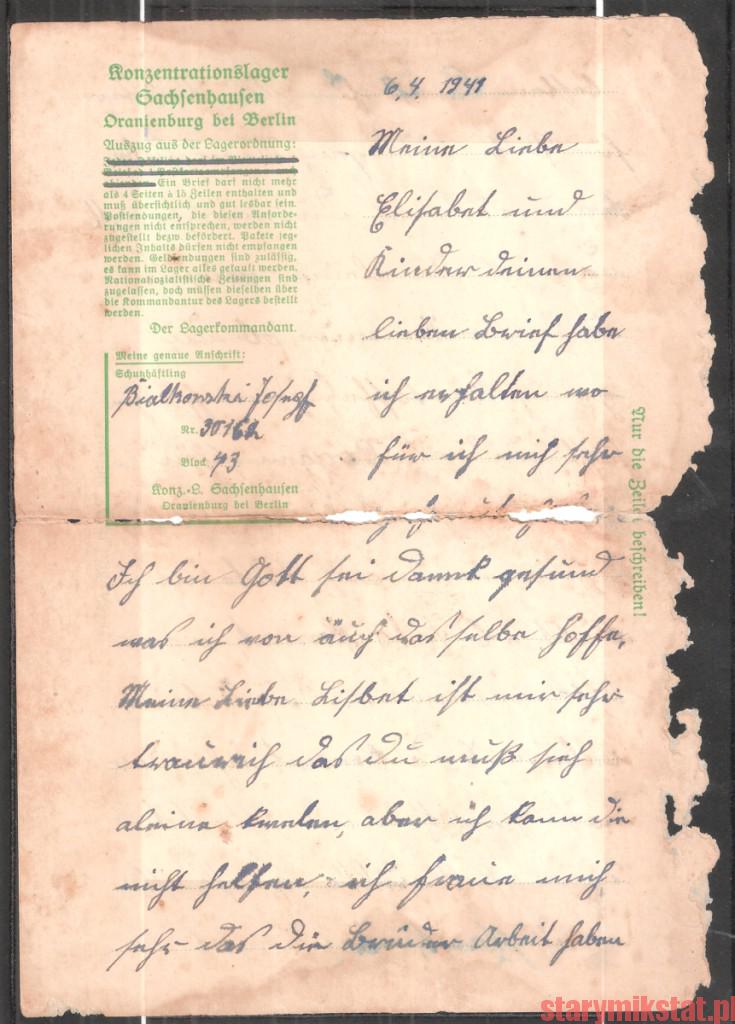 Konzentrationslager
Sachsenhausen
Oranienburg bei Berlin
Auszug aus der Lagerordnung:
Ein Brief darf nicht mehr
als 4 Seiten à 15 Zeilen enthalten und
muß übersichtlich und gut lesbar sein.
Postsendungen, die diesen Anforde-
rungen nicht entsprechen, werden nicht
zugestellt bezw. befördert. Pakete jeg-
lichen Inhalts dürfen nicht empfangen
werden. Geldsendungen sind zulässig,
es kann im Lager alles gekauft werden.
Nationalsozialistische Zeitungen sind
zugelassen, doch müssen dieselben über
die Kommandantur des Lagers bestellt
werden.
Der Lagerkommandant.
Meine genaue Anschrift:
Schutzhäftling
Bialkowski Josepf
Nr. 30162
Block 43
Konz.-L. Sachsenhausen
Oranienburg bei Berlin
6,4. 1941
Meine Liebe
Elisabet und
Kinder deinen
lieben Brief habe
ich erhalten wo
für ich mich sehr
Ich bin Gott sei dannk gesund
was ich von äuch das selbe hoffe,
Meine Liebe Lisbet ist mir sehr
traurich das du muß sich
aleine kwelen, aber ich kann die
nicht helfen, ich fraue mich
sehr das die Brüder Arbeit haben
Nur die Zeilen beschreiben!
starymikstat.pl